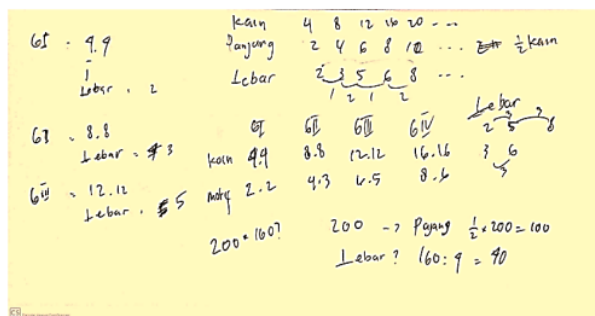 GI : 4.4
Lebar : 2
GII : 8.8
Lebar = 3
GIII : 12.12
Lebar : 5
Kain 4 8 12 16 20 ...
Panjang 2 4 6 8 10 ... 1/2 kain
Lebar 2 3 5 6 8 ...
1 2 1 2
GI GII GIII GIV
kain 4.4 8.8 12.12 16.16
motif 2.2 4.3 6.5 8.6
Lebar
3 3
2 5 8
3 6
3
200 * 160?
200 -> Pajang 1/2 x 200 = 100
Lebar? 160 : 4 = 40
CS